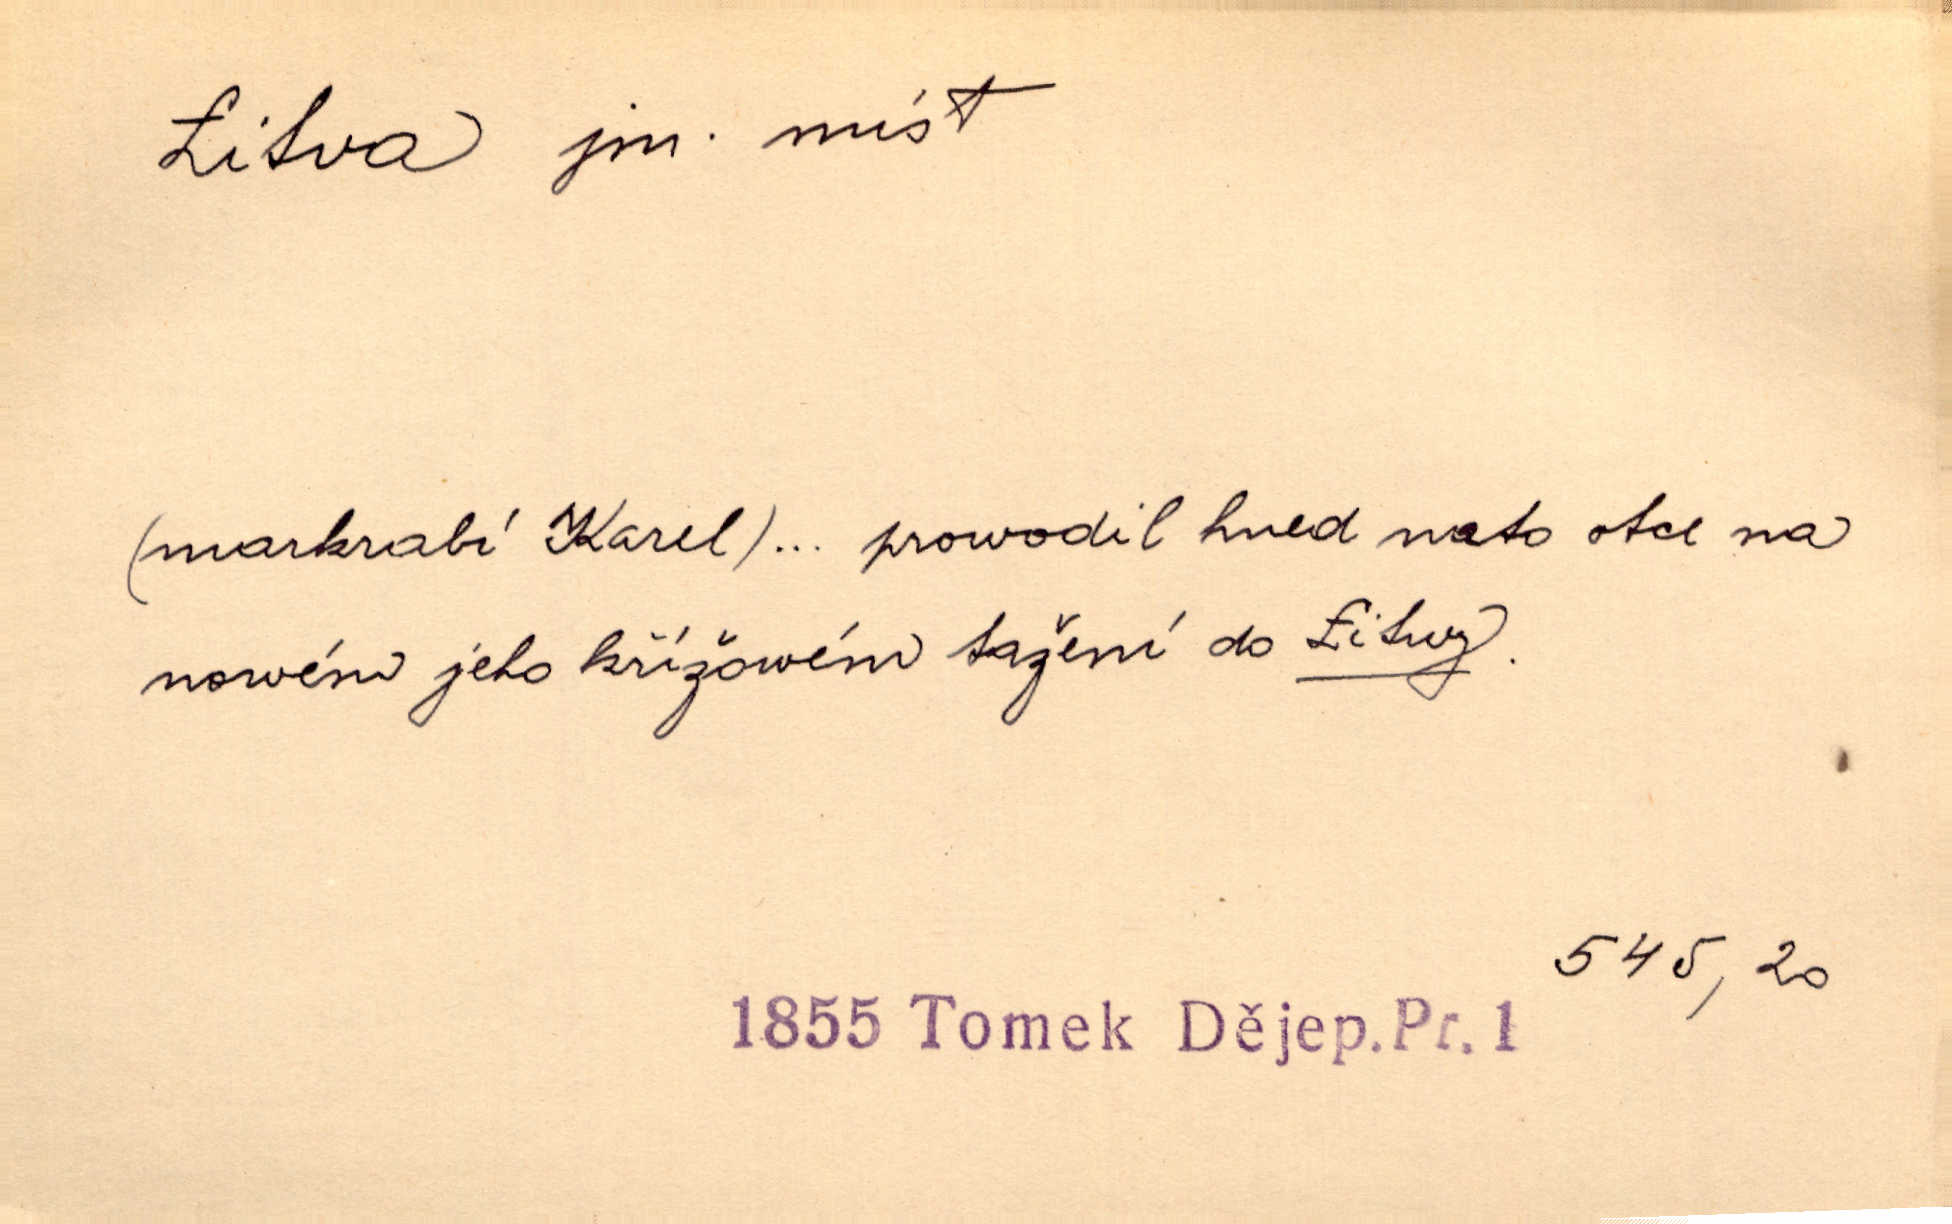 Litva jm. míst
(markrabí Karel)... prowodil hned nato otce na
nowém jeho křížowém tažení do Litwy.
545, 20
1855 Tomek Dějep. Pr. 1